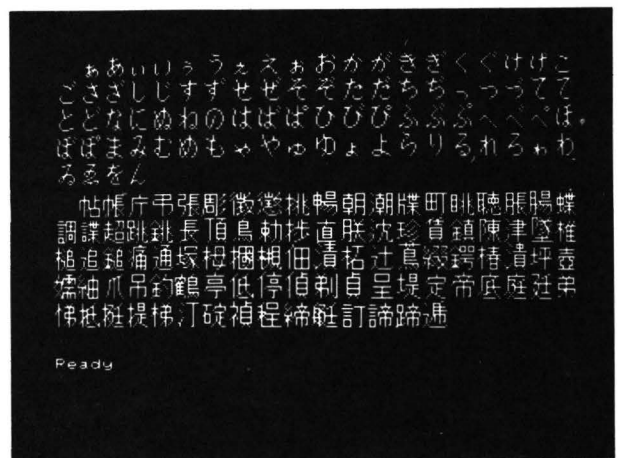 ぁあぃいぅうぇえぉおかがきぎくぐけげこ
ごさざしじすずせぜそぞただちぢっつづてで
とどなにぬねのはばぱひびぴふぶぷへべぺほ
ぼぽまみむめもゃやゅゆょよらりるれろゎわ
ゐゑをん
帖帳庁弔張彫徴懲挑暢朝潮牒町眺聴脹腸蝶
調諜超跳銚長頂鳥勅捗直朕沈珍賃鎮陳津墜椎
槌追鎚痛通塚栂掴槻佃漬柘辻蔦綴鍔椿潰坪壺
嬬紬爪吊釣鶴亭低停偵剃貞呈堤定帝底庭廷弟
悌抵挺提梯汀碇禎程締艇訂諦蹄逓
Ready